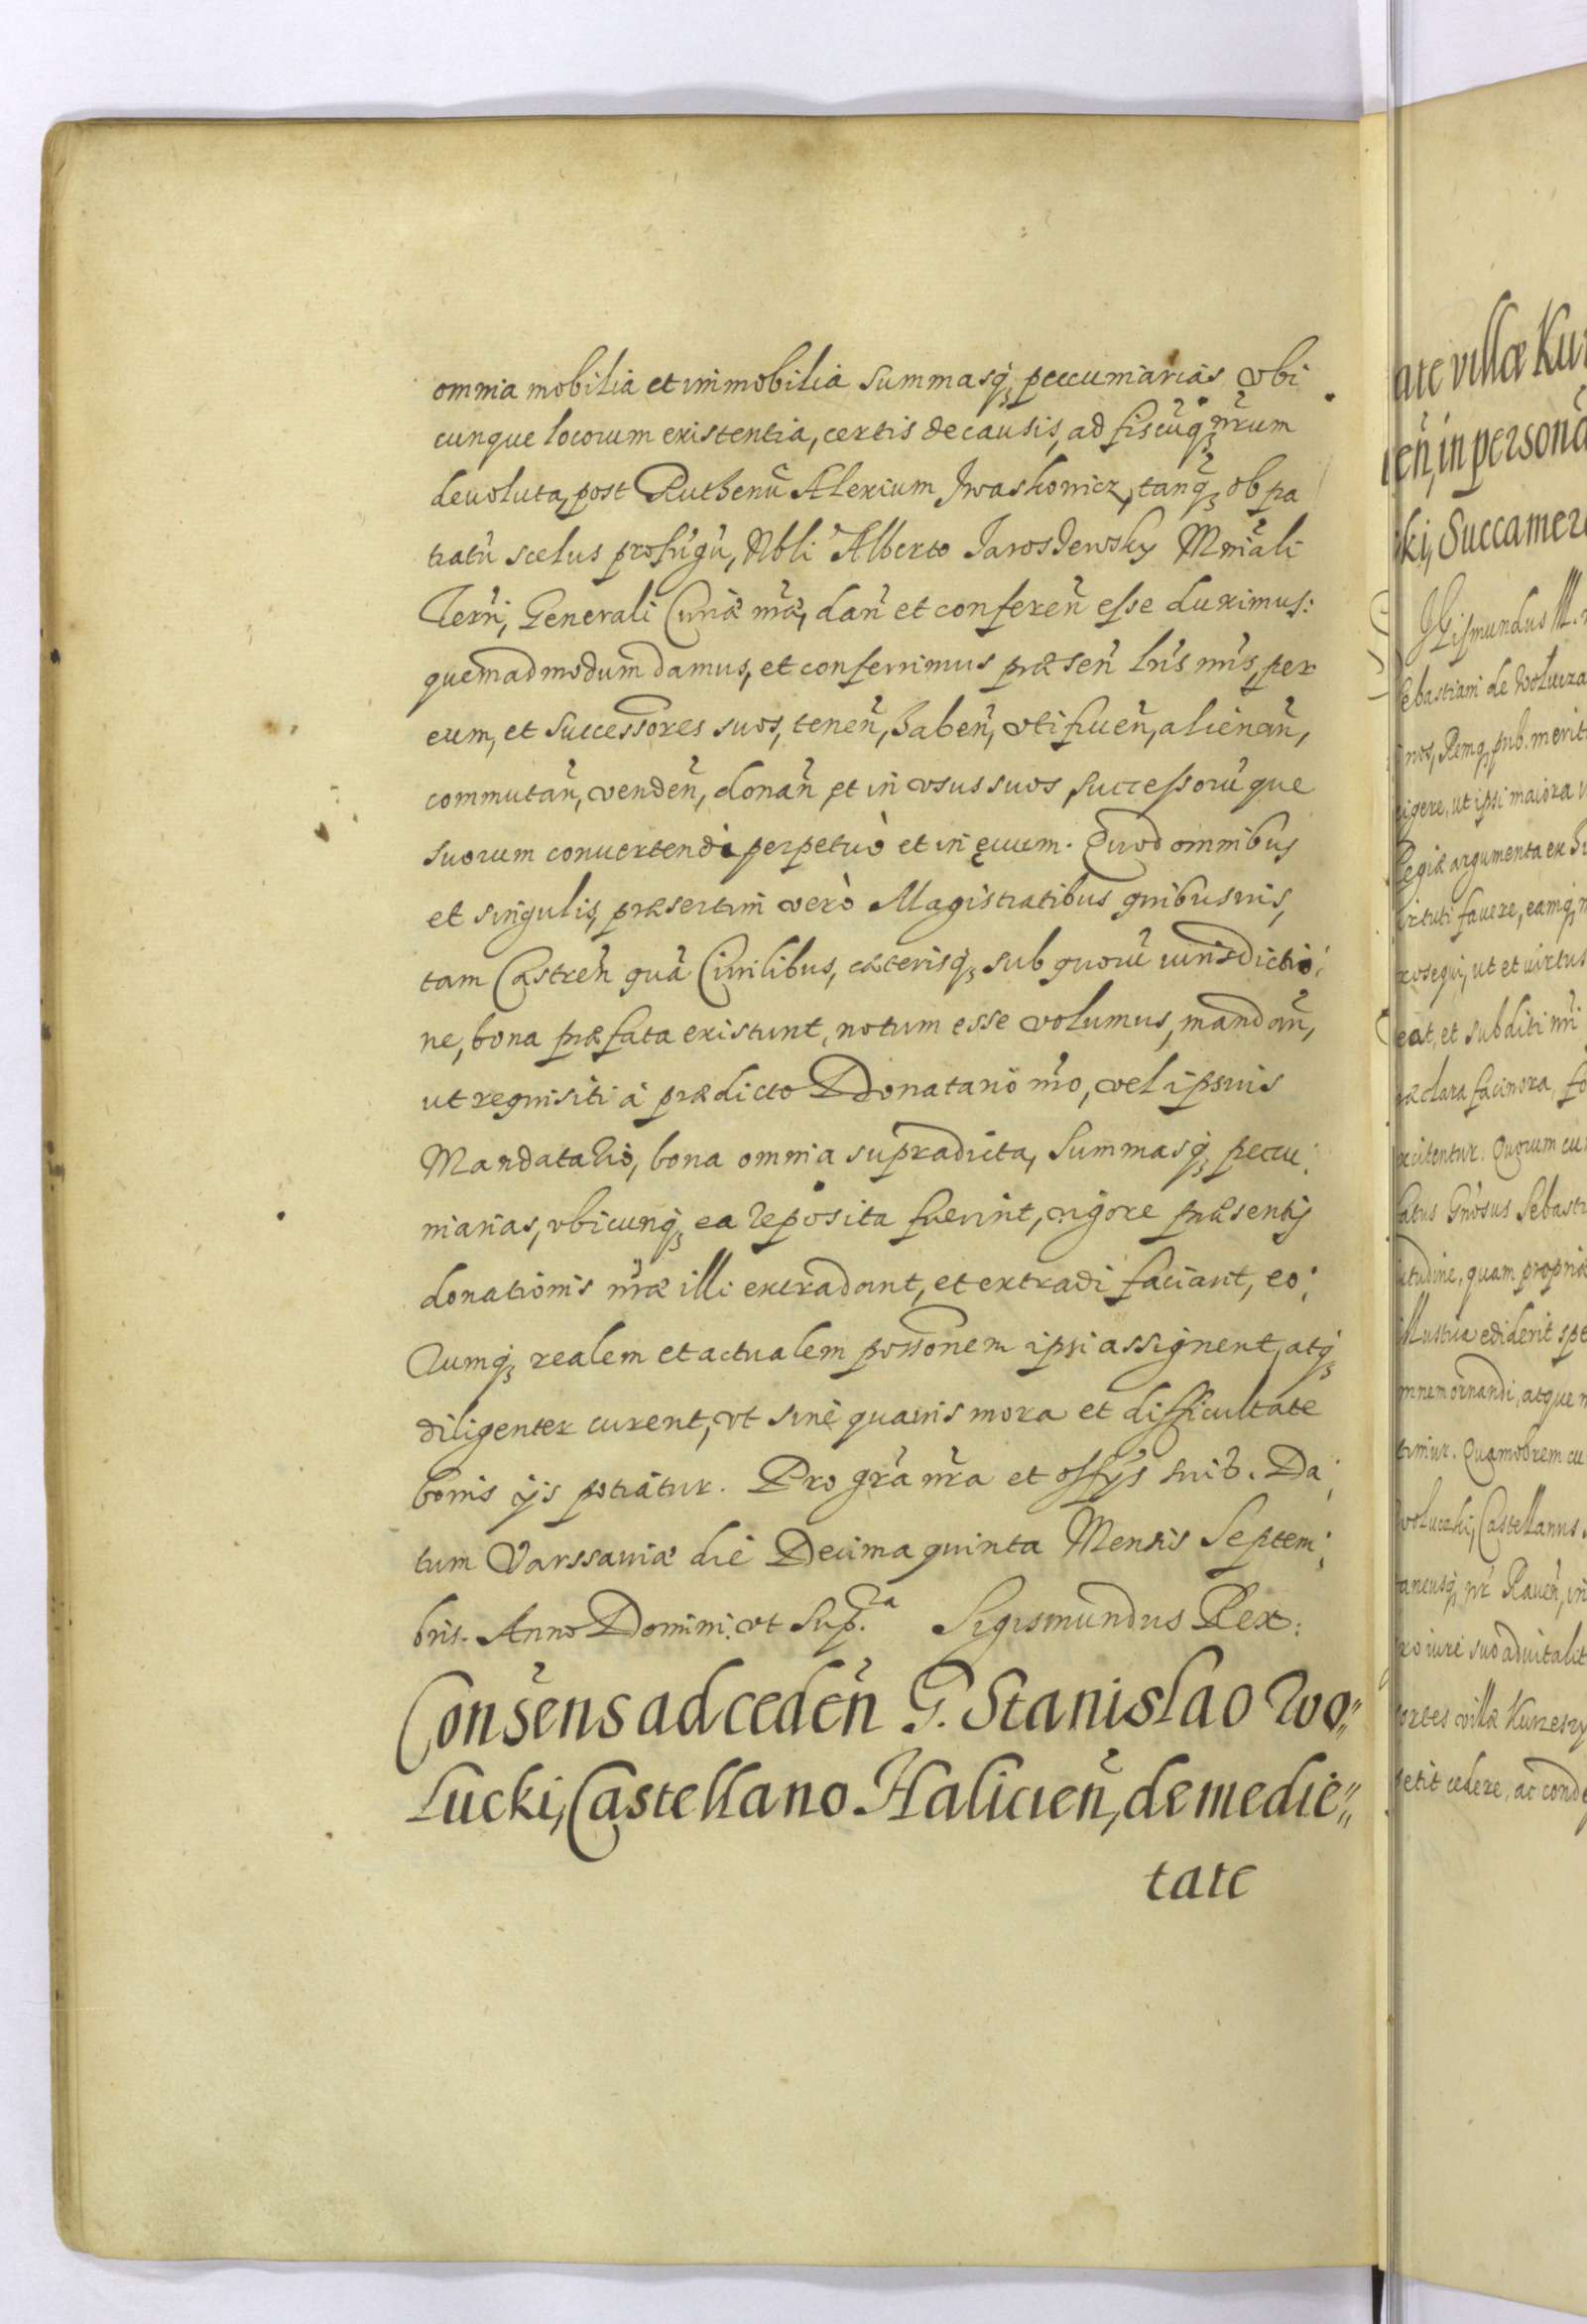 omnia mobilia et immobilia summasq₃ peccuniarias vbi
cunque locorum existentia, certis de causis, ad fiscũq₃ nr̃um
deuoluta, post Ruthenũ Alexium Jwaskonicz, tanq̃₃ ob pa
tratũ scelus profugũ, Nbli Alberto Jaroszewsky Mr̃iali
Terr̃i, Generali Curiæ nr̃æ, dañ et confereñ esse duximus:
quemadmodum damus, et conferrimus præseñ lr̃is nr̃is, per
eum, et successores suos, teneñ, habeñ, vti frueñ, alienañ,
commutañ, vendeñ, donañ et in vsus suos successorũque
suorum conuertendi perpetuò et in ęuum. Quod omnibus
et singulis, præsertim verò Magistratibus quibusuis,
tam Castreñ quã Ciuilibus, cæterisq₃ sub quorũ iurisdictio:
ne, bona præfata existunt, notum esse volumus, mandañ,
ut requisiti à prædicto Donatario nr̃o, vel ipsius
Mandatario, bona omnia supradicta, summasq₃ peccu:
niarias, vbicunq₃ ea reposita fuerint, vigore præsentis
donationis nr̃æ illi extradant, et extradi faciant, eo:
rumq₃ realem et actualem possonem ipsi assignent, atq₃
diligenter curent, vt sine quauis mora et difficultate
bonis ijs potiatur. Pro gr̃a nr̃a et offijs suis. Da:
tum Varssauiæ die Decima quinta Mensis Septem:
bris. Anno Domini. vt Sup.ª Sigismundus Rex:
Conseñs ad cedeñ G. Stanislao Wo⸗
lucki, Castellano Halicieñ, de medie⸗
tate
ate villæ Kur
eñ, in personã
ki, Succamer
Sigismundus III.
Sebastiani de Wolucza
nos, Remq₃ pub. merit
Regiæ argumenta ex
virtuti fauere, eamq₃
rosequi, ut et uirtus
eat, et subditi nr̃i
præclara facinora, fo
xcitentur. Quorum cu
latus Gñosus Sebasti
tudine, quam propria
illustria ediderit spe
mnem ornandi, atque
timur. Quamobrem cu
Wolucki, Castellanus
ro iure suo aduitalit
ortes villæ Kurzeszy
petit cedere, ac conde